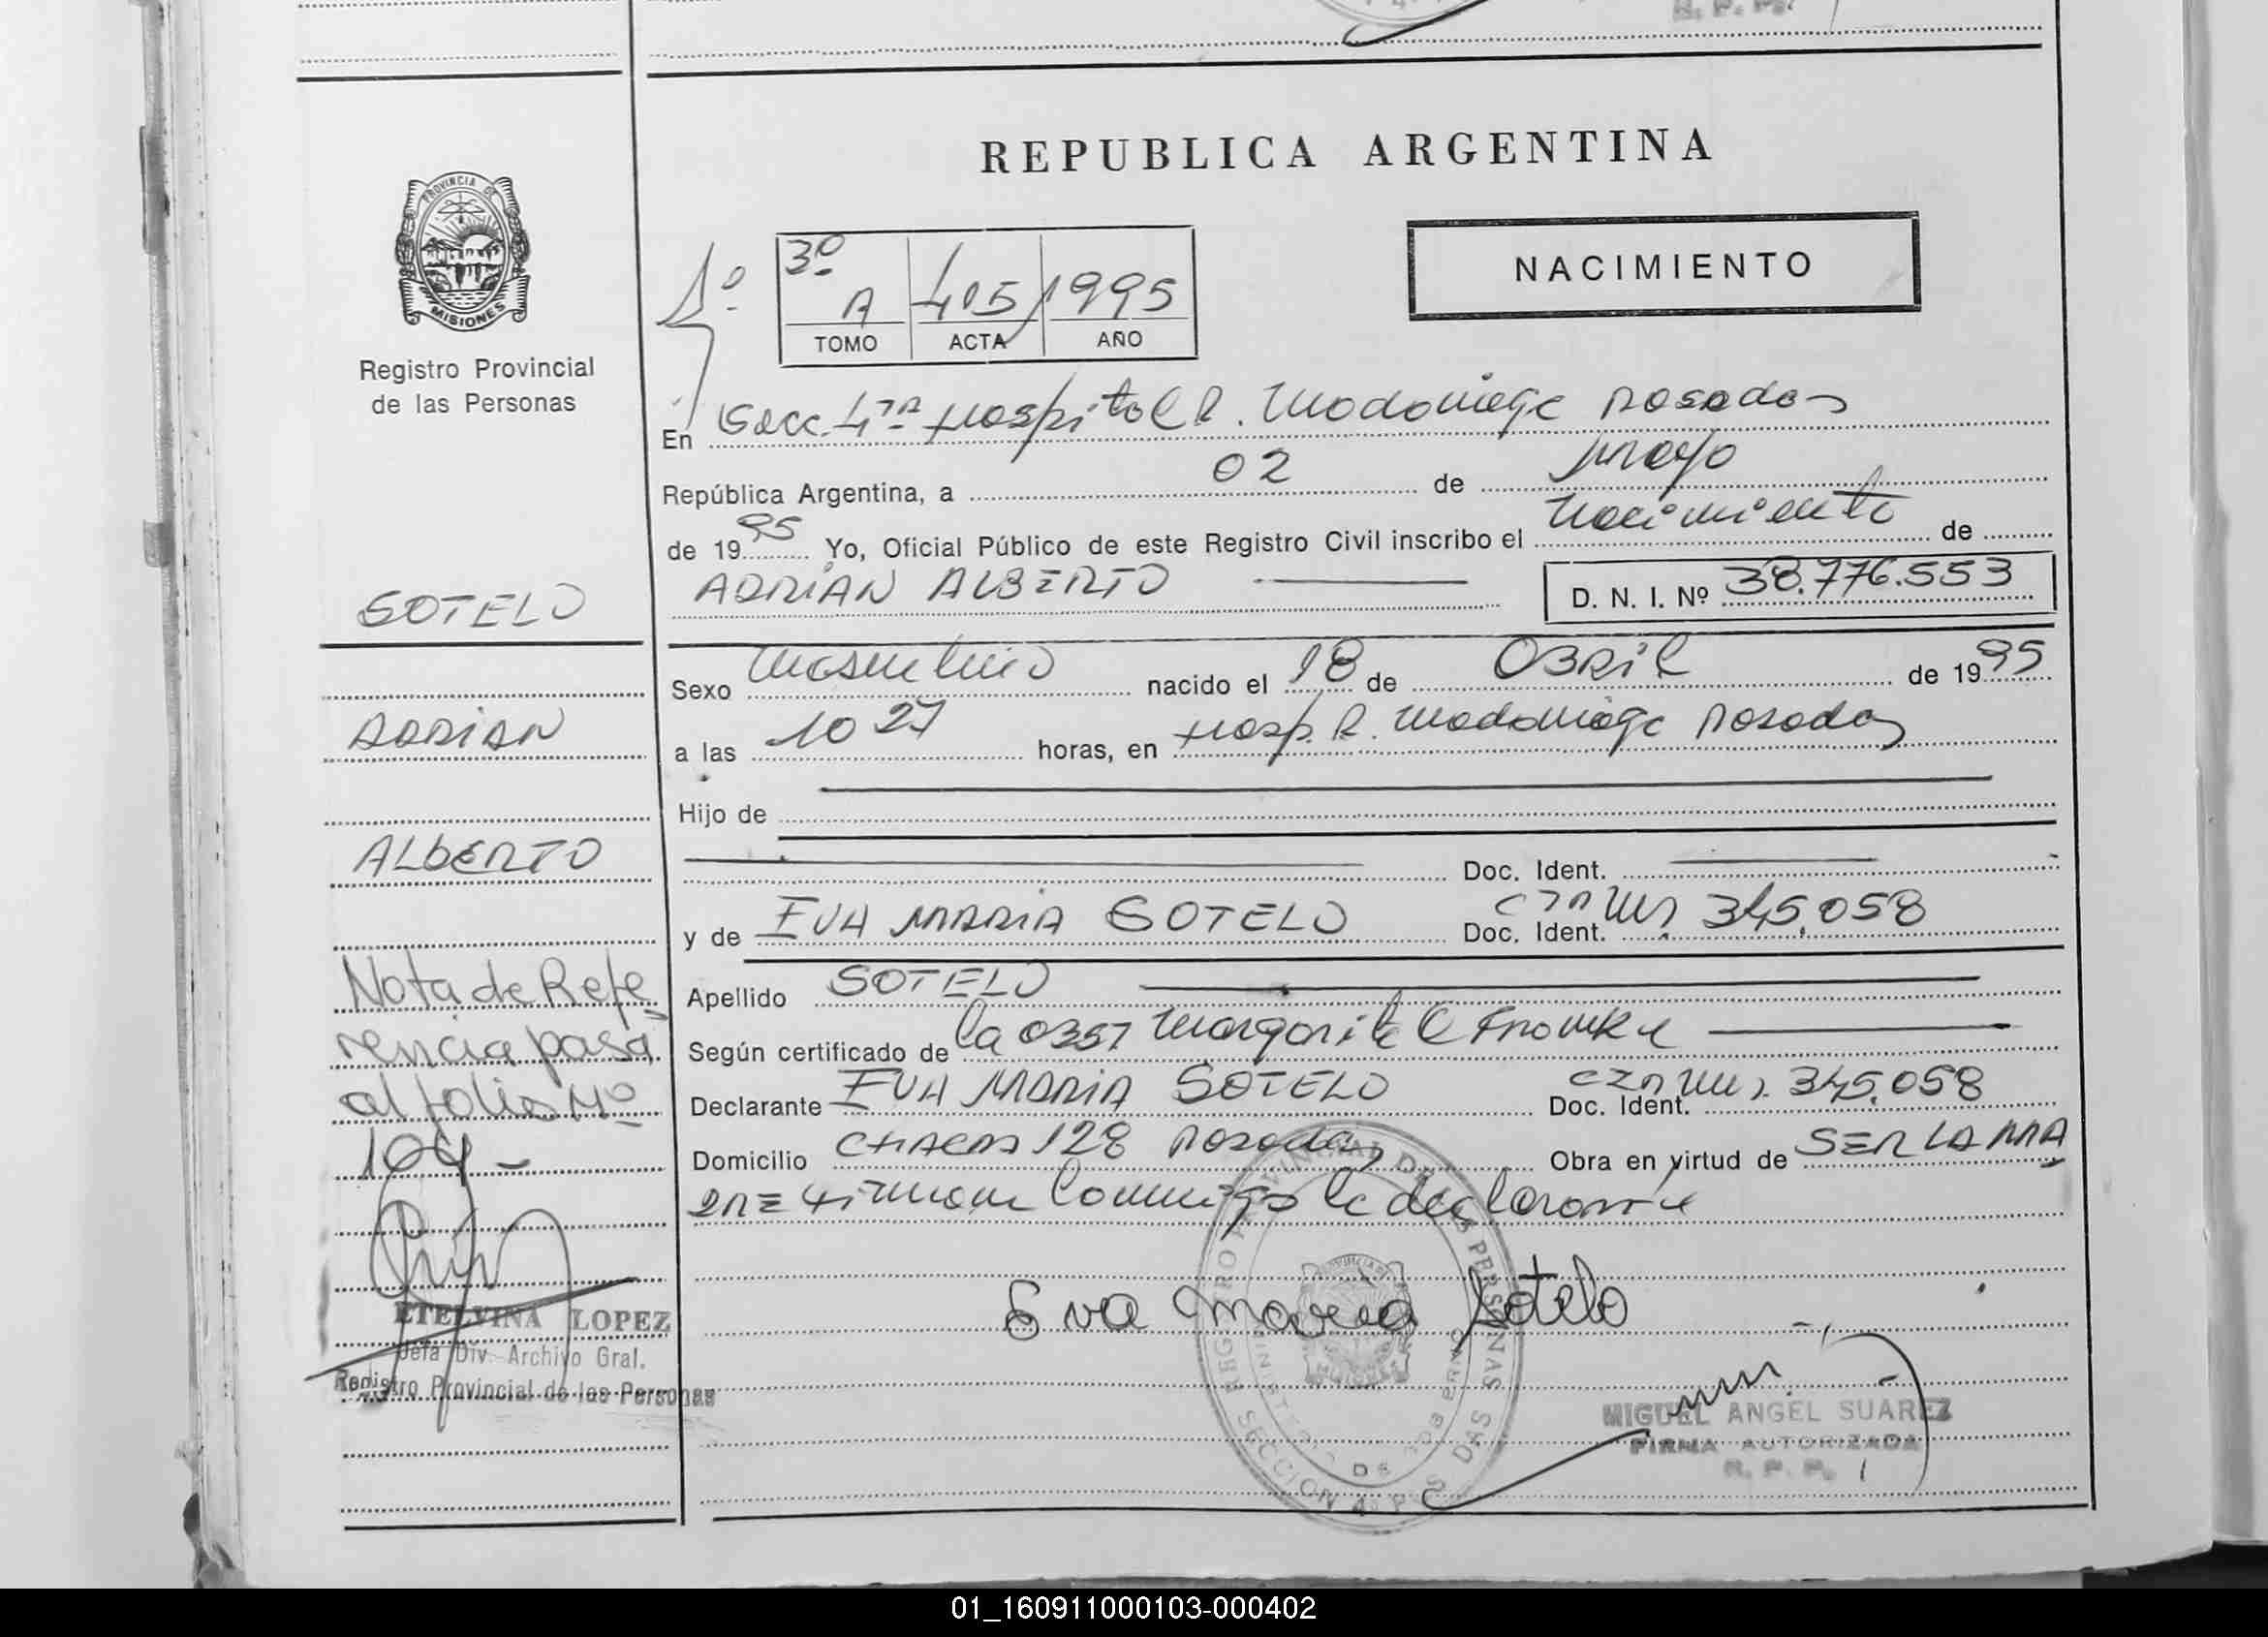 REPUBLICA ARGENTINA
PROVINCIA DE
MISIONES
Registro Provincial
de las Personas
3º
A
405
1995
TOMO
ACTA
AÑO
NACIMIENTO
En Secc. 4ta Hospital R. Madariaga Posadas
República Argentina, a 02 de mayo
de 1995 Yo, Oficial Público de este Registro Civil inscribo el Nacimiento de
ADRIAN ALBERTO
D. N. I. Nº 38.776.553
Sexo masculino nacido el 18 de ABRIL de 1995
a las 10 27 horas, en Hosp. R. Madariaga Posadas
Hijo de
Doc. Ident.
y de EVA MARIA SOTELO Doc. Ident. 345.058
Apellido SOTELO
Según certificado de la OBST Margarita
Declarante EVA MARIA SOTELO Doc. Ident. 345.058
Domicilio CHACRA 128 Posadas Obra en virtud de SER LA MA
DRE Firma Conmigo la declarante
Eva Maria Sotelo
MIGUEL ANGEL SUAREZ
FIRMA AUTORIZADA
R. P. P.
SOTELO
ADRIAN
ALBERTO
Nota de Refe
rencia pasa
al folio Nº
104-
ETELVINA LOPEZ
Jefa Div. Archivo Gral.
Registro Provincial de las Personas
REGISTRO PROVINCIAL DE LAS PERSONAS
SECCION 4º POSADAS
01_160911000103-000402